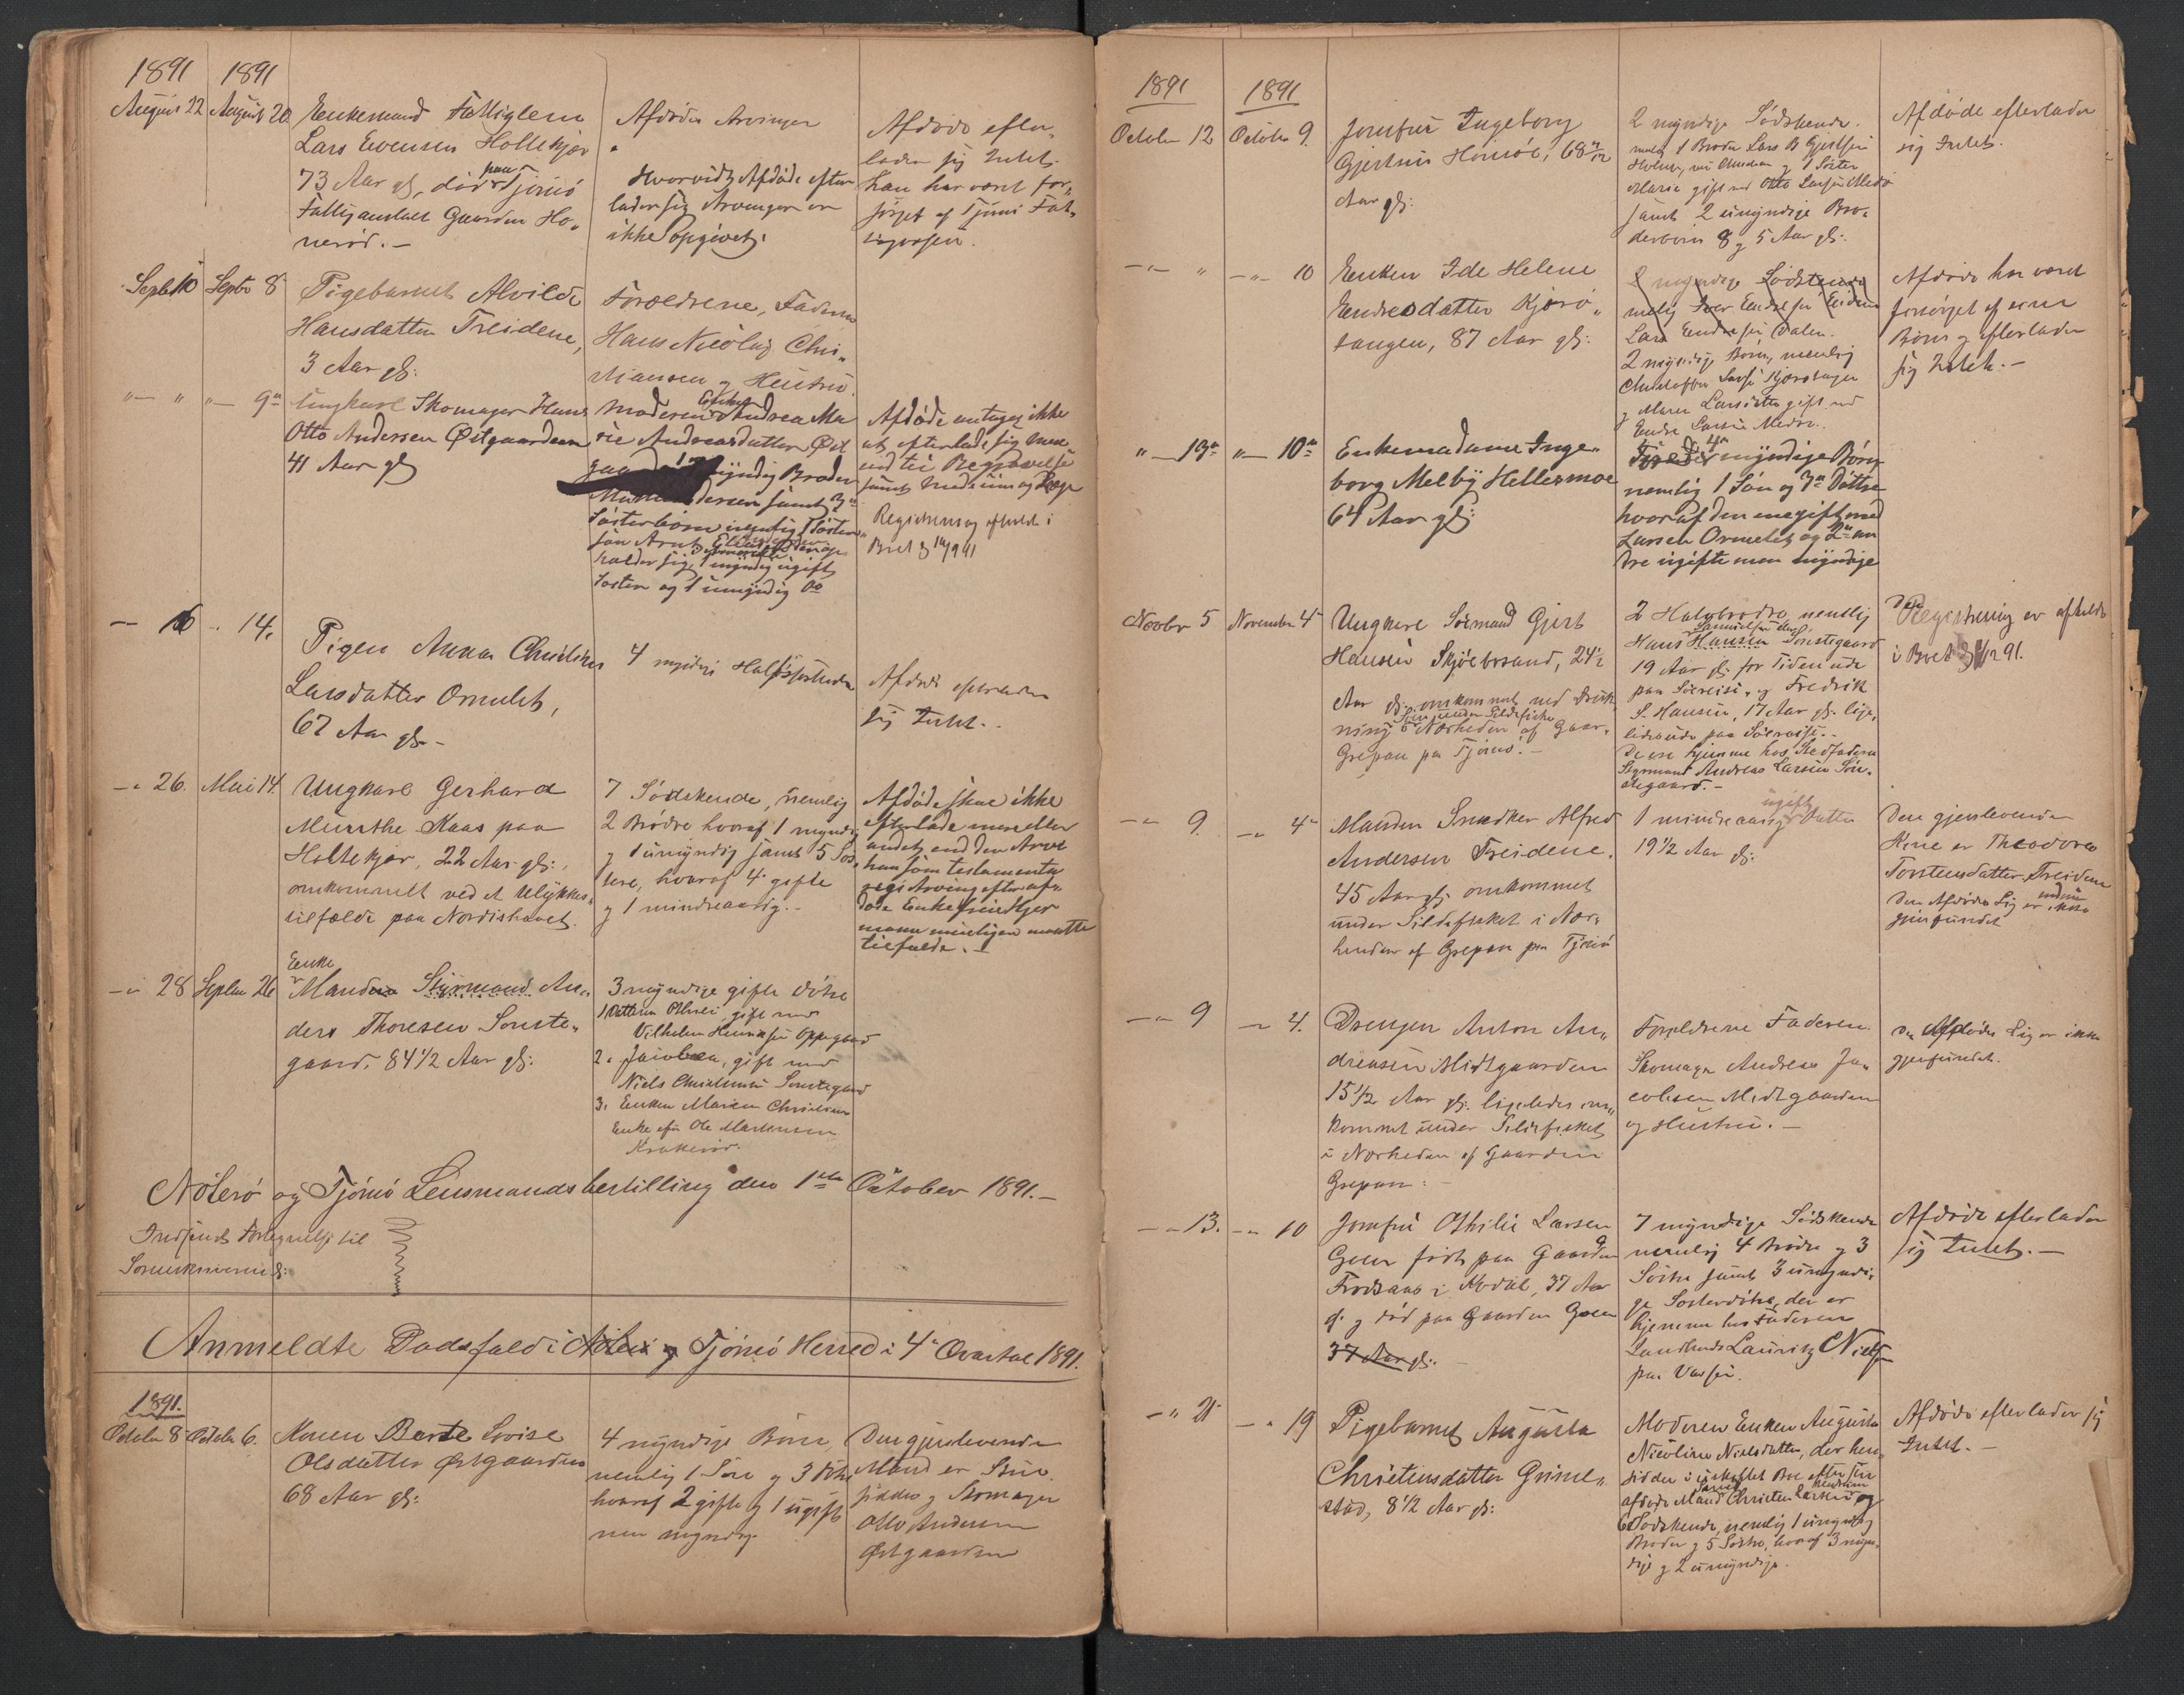 1891 1891
August 22 August 20 Enkemand Fattiglem
Lars Evensen Holtekjær
73 Aar gl, død paa Tjømø
Fattiganstalt Gaarden Ho„
nerød. —
Afdødes Arvinger
Hvorvidt Afdøde efter
lader sig Arvinger er
ikke opgivet.
Afdøde efter„
lader sig Intet.
han har været for„
sørget af Tjømø Fat„
tigvæsen.
Septb 10 Septbr 8 Pigebarnet Alvilde
Hansdatter Treidene,
3 Aar gl:
Forældrene, Faderen
Hans Nicolay Chri„
stiansen og Hustru
" — " " — 9 Ungkarl Skomager Hans
Otto Andersen Østgaarden
41 Aar gl
Moderen Enken Andrea Ma
rie Andreasdatter Øst
myndig Broder
dersen samt
Søsterbørn nemlig 1 Søster„
søn Arnt
holder sig, 1 myndig ugift
Søster og 1 umyndig Do
Afdøde antages ikke
at efterlade sig mere
end til Begravelse
samt Medicin og Læge
Registrering afholdt i
Boet d 14/9 91
— 16 - 14. Pigen Anna Christine
Larsdatter Ormelet,
67 Aar gl. -
4 myndige Halfsøskende
Afdøde efterlader
sig Intet. -
— " 26. Mai 14. Ungkarl Gerhard
Munthe Kaas paa
Holtekjær, 22 Aar gl:,
omkommet ved et Ulykkes„
tilfælde paa Nordishavet.
7 Sødskende, nemlig
2 Brødre hvoraf 1 myndig
g 1 umyndig samt 5 Søs„
tere, hvoraf 4 gifte
g 1 mindreaarig. -
Afdøde skal ikke
efterlade mere eller
andet end den Arv
han som testamenta
Arving efter af„
døde Enkefru
muligen maatte
tilfalde. -
— " 28 Septbr 26 Enke
Manden Styrmand An„
ders Thoresen Sønste„
gaard, 84 1/2 Aar gl:
3 myndige gifte Døtre
1 Datteren gift med
Vilhelm Henriksen Oppegaard
2. Jacobea, gift med
Niels Christensen Sønstegaard
3. Enken Maren Christine
Enke efter Ole Martensen
Krukerød.
Nøterø og Tjømø Lensmandsbestilling den 1ste October 1891. —
Indsendt Fortegnelse til
Sorenskriveren d:
Anmeldte Dødsfald i Nøterø og Tjømø Herred i 4de Qvartal 1891.
1891.
Octobr 8 Octobr 6. Konen Berte Lovise
Olsdatter Østgaarden
68 Aar gl:
4 myndige Børn,
nemlig 1 Søn g 3 Døtre
hvoraf 2 gifte g 1 ugift
men myndig
Den gjenlevende
Mand er Hus„
fidder g Skomager
Otto Andersen
Østgaarden
1891 1891
October 12 October 9. Jomfru Ingeborg
Gjertsen Hvasser, 68
Aar gl:
2 myndige Sødskende.
nemlig 1 Broder Lars B Gjertsen
g 1 Søster
Maria gift med Otto Larsen Medø
samt 2 umyndige Bro„
derbørn 8 g 5 Aar gl:.
Afdøde efterlader
sig Intet.
— " — " — " — 10 Enken Ide Helene
Endresdatter Kjærø„
tangen, 87 Aar gl:
2 myndige Sødskende
nemlig Iver Endresen
Lars Endresen Dalen.
2 myndige Børn, nemlig
Christoffer Larsen Kjærøtangen
g Maren Larsdatter gift med
Endre Larsen Medø.
Afdøde har været
forsørget af sine
Børn g efterlader
sig Intet. —
" — 13 " — 10 Enkemadame Inge„
borg Melby Hellesmoe
64 Aar gl:
4 myndige Børn
nemlig 1 Søn og 3 Døttre
hvoraf den ene gift med
Larsen Ormelet og 2 an
dre ugifte men myndige
Novbr 5 November 4 Ungkarl Sømand Gjert
Hansen Skjøebosund, 24 1/2
Aar gl: omkommet ved Druk„
ning under Sildefiske
i Nærheden af Gaar„
Grepan paa Tjømø. —
2 Halvbrødre, nemlig
Hans Hansen Sønstegaard
19 Aar gl: for Tiden ude
paa Søreise, g Fredrik
S. Hansen, 17 Aar gl: lige„
ledes ude paa Søreise.
De ere hjemme hos Stedfaderen
Styrmand Andreas Larsen Søn„
stegaard. —
Registrering er afholdt
i Boet d 91.
— " 9. — " 4 Manden Snedker Alfred
Andersen Treidene.
45 Aar gl: omkommet
under Sildefisket i Nær„
heden af Grepan paa Tjømø
1 mindreaarig ugift Datter
19 1/2 Aar gl:
Den gjenlevende
Kone er Theodora
Torstensdatter Treidene
Den Afdødes Lig er endnu ikke
gjenfundet
— " 9 — 4. Drengen Anton An„
dreasen Midtgaarden
15 1/2 Aar gl: ligeledes om„
kommet under Sildefisket
i Nærheden af Gaarden
Grepan: —
Forældrene Faderen
Skomager Andreas Ja„
cobsen Midtgaarden
og Hustru. —
Den Afdødes Lig er ikke
gjenfundet.
— " 13. — " 10 Jomfru Othilie Larsen
Goen født paa Gaarden
i 37 Aar
gl. g død paa Gaarden Goen
37 Aar gl:. —
7 myndige Sødskende
nemlig 4 Brødre g 3
Søstre samt 3 umyndi„
ge Søsterdøtre, der er
hjemme hos Faderen
Lauritz Nielsen
paa
Afdøde efterlader
sig Intet. —
— " 21 — " 19 Pigebarnet Augusta
Christensdatter Grime„
stad, 8 1/2 Aar gl:
Moderen Enken Augusta
Nicoline Nielsdatter, der hen„
sidder i uskiftet Bo efter sin
afdøde Mand Christen Larsen og
6 Sødskende, nemlig 1 umyndig
Broder g 5 Søstre, hvoraf 3 myn„
dige g 2 umyndige.
Afdøde efterlader sig
Intet. —